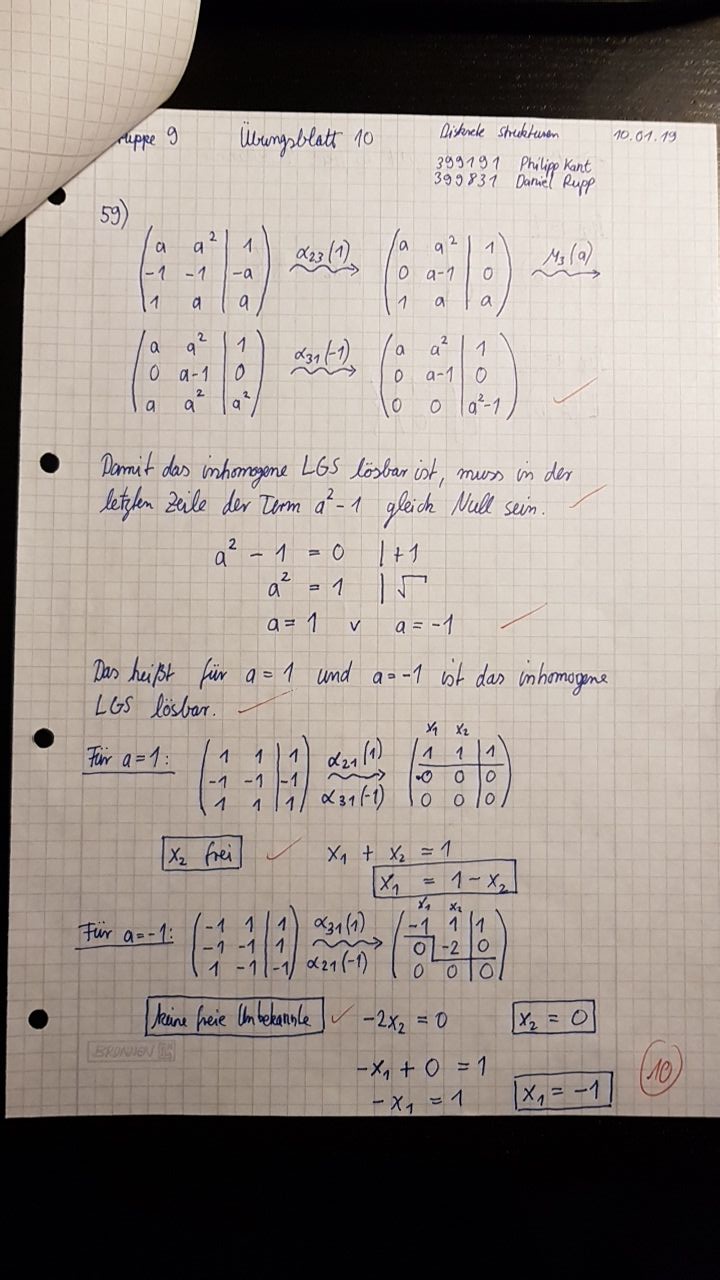 ruppe 9 Übungsblatt 10 Diskrete Strukturen 10.01.19
399191 Philipp Kant
399831 Daniel Rupp
59)
a a² | 1
-1 -1 | -a
1 a | a
α₂₃(1)
a a² | 1
0 a-1 | 0
1 a | a
μ₃(a)
a a² | 1
0 a-1 | 0
a a² | a²
α₃₁(-1)
a a² | 1
0 a-1 | 0
0 0 | a²-1
Damit das inhomogene LGS lösbar ist, muss in der
letzten Zeile der Term a²-1 gleich Null sein.
a² - 1 = 0 | +1
a² = 1 | √
a = 1 v a = -1
Das heißt für a = 1 und a = -1 ist das inhomogene
LGS lösbar.
Für a = 1:
1 1 | 1
-1 -1 | -1
1 1 | 1
α₂₁(1)
α₃₁(-1)
x₁ x₂
1 1 | 1
0 0 | 0
0 0 | 0
x₂ frei x₁ + x₂ = 1
x₁ = 1 - x₂
Für a = -1:
-1 1 | 1
-1 -1 | 1
1 -1 | -1
α₃₁(1)
α₂₁(-1)
x₁ x₂
-1 1 | 1
0 -2 | 0
0 0 | 0
keine freie Unbekannte -2x₂ = 0 x₂ = 0
BRUNNEN
-x₁ + 0 = 1
-x₁ = 1 x₁ = -1
10